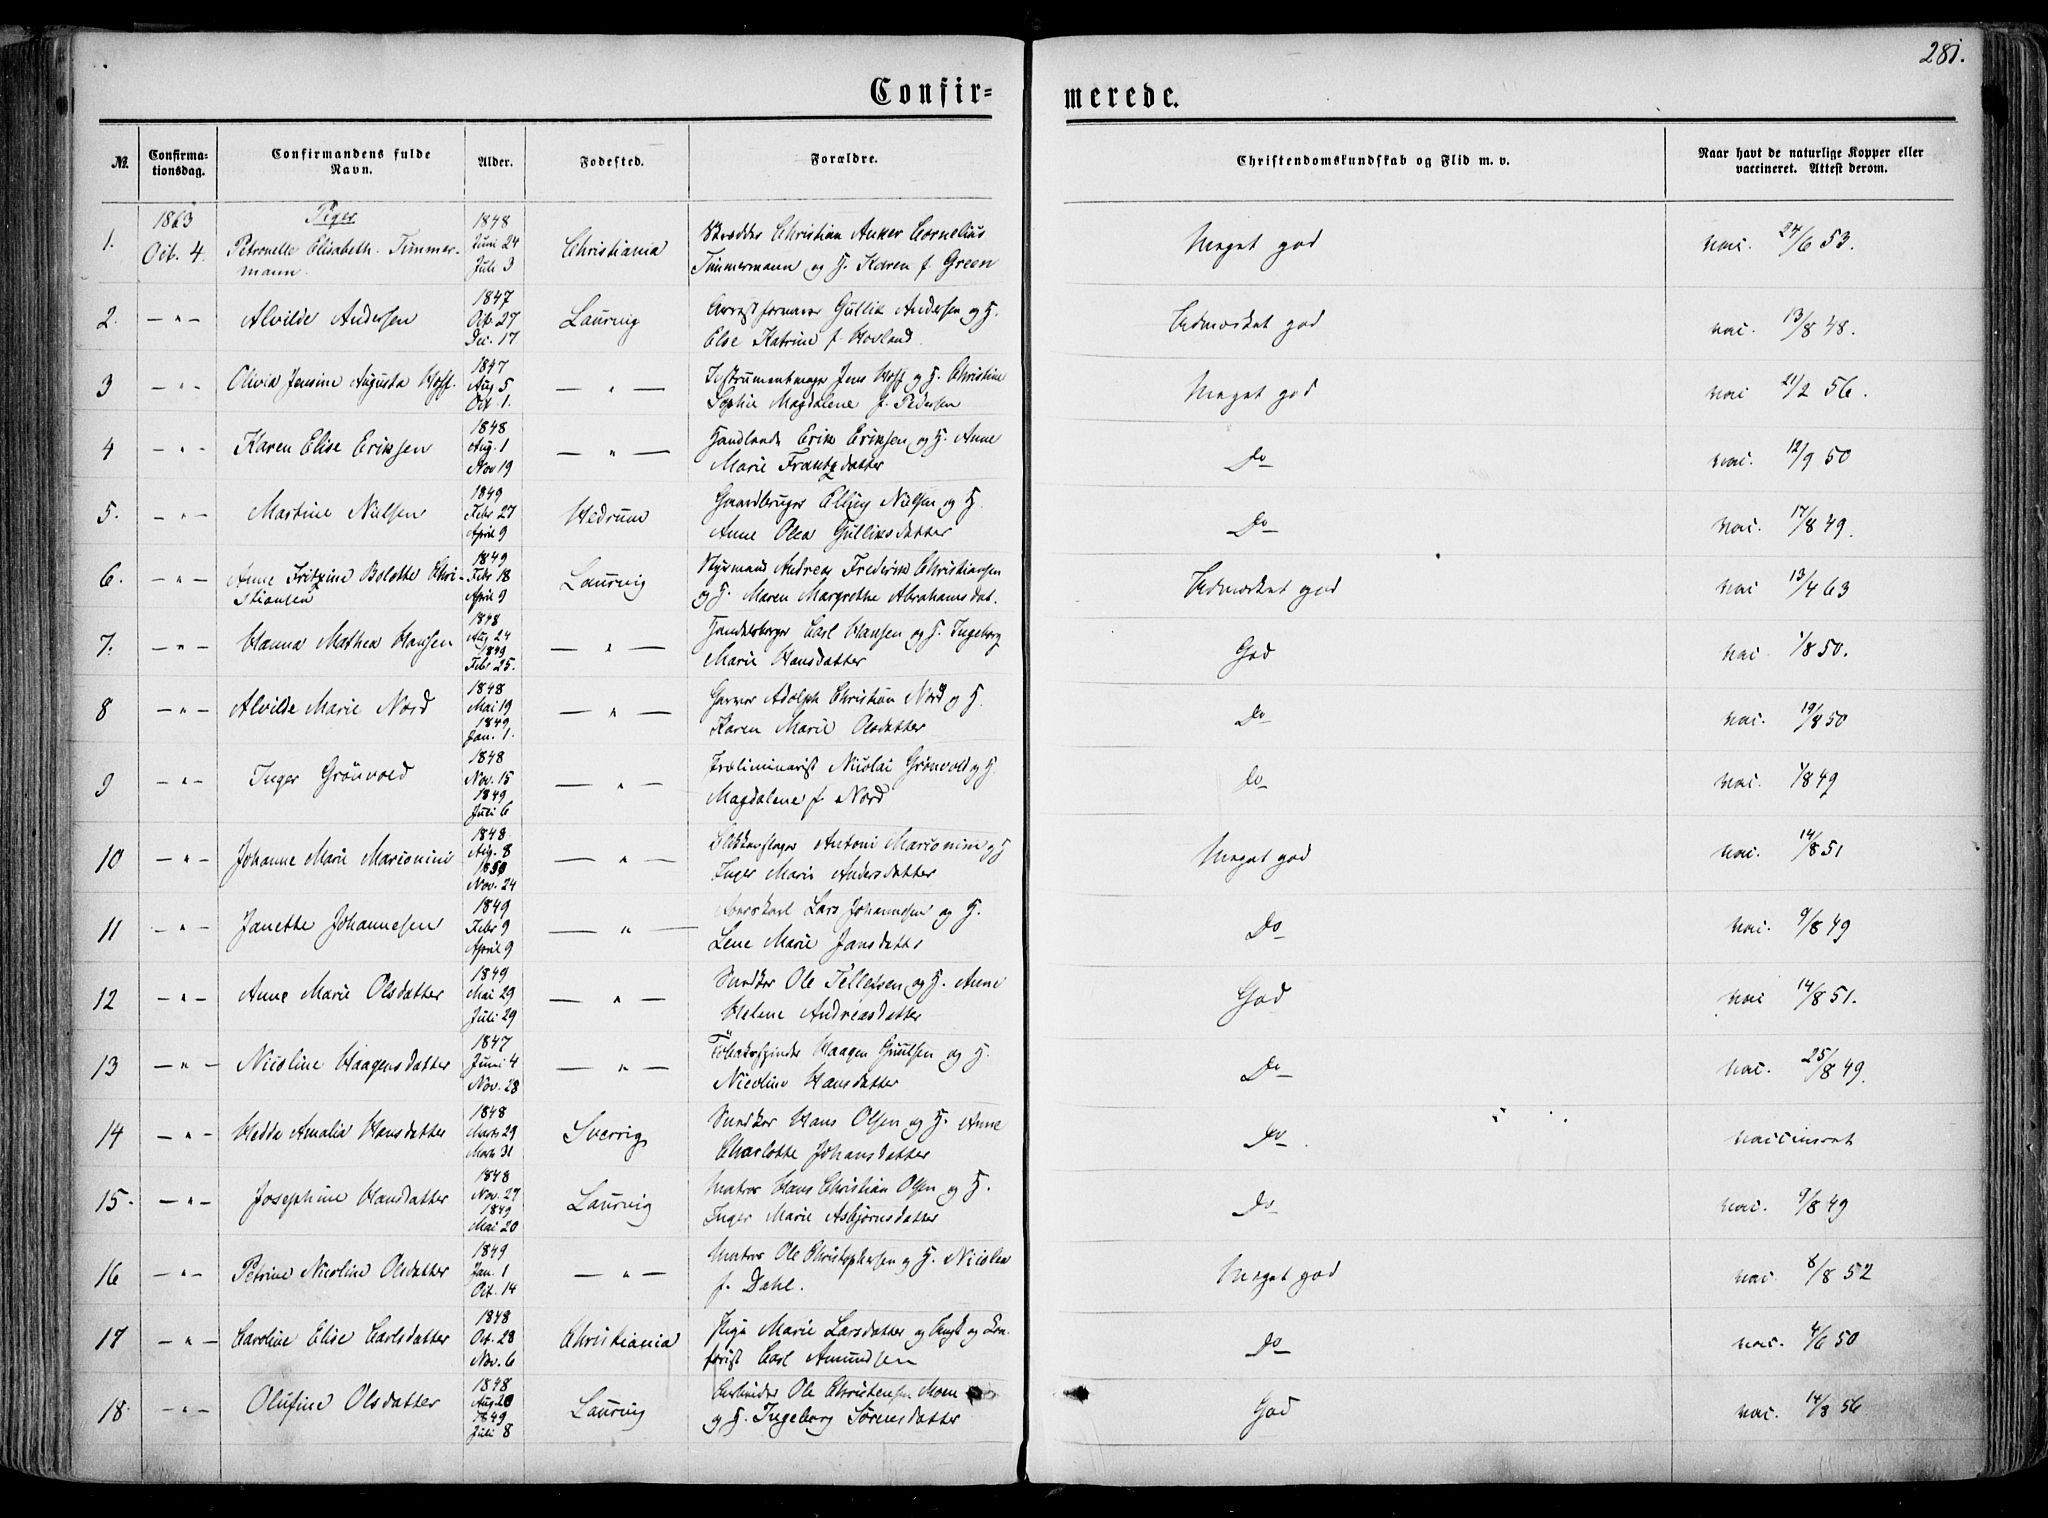 281.
Confir-
merede.
No.
Confirma-
tionsdag.
Confirmandens fulde
Navn.
Alder.
Fødested.
Forældre.
Christendomskundskab og Flid m. v.
Naar havt de naturlige Kopper eller
vaccineret. Attest derom.
1863
Piger
1. Oct. 4. Petronelle Elisabeth Timmer-
mann
1848
Juni 24
Juli 3
Christiania
Skrædder Christian Anker Cornelius
Timmermann og H. Karen f Green
Meget god
vac. 24/6 53.
2. — " — Alvilde Andersen
1847
Oct. 27
Dec. 17
Laurvig
Gullik Andersen og H.
Else Katrine f. Hovland
Udmærket god
vac. 13/8 48.
3 — " — Olivia Jensine Augusta Hoff.
1847
Aug 5
Oct. 1.
— " —
Instrumentmager Jens Hoff og H. Christine
Sophie Magdalene f. Pedersen
Meget god
vac 21/2 56.
4 — " — Karen Elise Eriksen
1848
Aug. 1
Nov 19
— " —
Handlende Erik Eriksen og H. Anne
Marie Frantzdatter
Do
vac. 12/9 50
5. — " — Martine Nielsen
1849
Febr 27
April 9
Hedrum
Gaardbruger Elling Nielsen og H.
Anne Olea Gulliksdatter
Do
vac. 17/8 49.
6. — " — Anne Fritzine Bolette Chri-
stiansen
1849
Febr 18
April 9
Laurvig
Andreas Frederik Christiansen
og H. Maren Margrethe Abrahamsdat.
Udmærket god
vac 13/4 63
7. — " — Hanna Mathea Hansen
1848
Aug 24
1849
Febr 25.
— " —
Handelsborger Carl Hansen og H. Ingeborg
Marie Hansdatter
God
vac. 1/8 50.
8 — " — Alvilde Marie Nord
1848
Mai 19
1849
Jan. 1.
— " —
Garver Adolph Christian Nord og H.
Karen Marie Olsdatter
Do
vac. 19/8 50
9 — " — Inger Grönvold
1848
Nov. 15
1849
Juli 6
— " —
Præliminarist Nicolai Grönvold og H.
Magdalene f Nord
Do
vac. 1/8 49
10 — " — Johanne Marie Marionini
1848
Aug. 8
1850
Nov. 24
— " —
Antoni Marionini og H
Inger Marie Andersdatter
Meget god
vac. 14/8 51
11 — " — Janette Johannesen
1849
Febr 9
April 9
— " —
Lars Johannesen og H.
Lene Marie Jansdatter
Do
vac. 9/8 49
12 — " — Anne Marie Olsdatter
1849
Mai 29
Juli 29
— " —
Snedker Ole Tellefsen og H. Anne
Helene Andreasdatter
God
vac 14/8 51.
13 — " — Nicoline Haagensdatter
1847
Juni 4
Nov. 28
— " —
Tobakspinder Haagen Gundersen og H.
Nicoline Hansdatter
Do
vac. 25/8 49.
14 — " — Hedda Amalia Hansdatter
1848
Marts 29
Marts 31
Sverrig
Snedker Hans Olsen og H. Anne
Charlotte Johansdatter
Do
vaccineret
15. — " — Josephine Hansdatter
1848
Nov. 27
1849
Mai 20
Laurvig
Matros Hans Christian Olsen og H.
Inger Marie Asbjørnsdatter
Do
vac. 9/8 49
16 — " — Petrine Nicoline Olsdatter
1849
Jan. 1
Oct. 14
— " —
Matros Ole Christophersen og H. Nicolea
f. Dahl.
Meget god
vac. 8/8 52
17 — " — Caroline Elise Carlsdatter
1848
Oct. 28
Nov. 6
Christiania
Pige Marie Larsdatter og Ungk og Con-
torist Carl Amundsen
Do
vac. 4/6 50
18. — " — Olufine Olsdatter
1848
Aug 20
1849
Juli 8
Laurvig
Ole Christensen Moen
og H. Ingeborg Sörensdatter
God
vac. 14/8 56